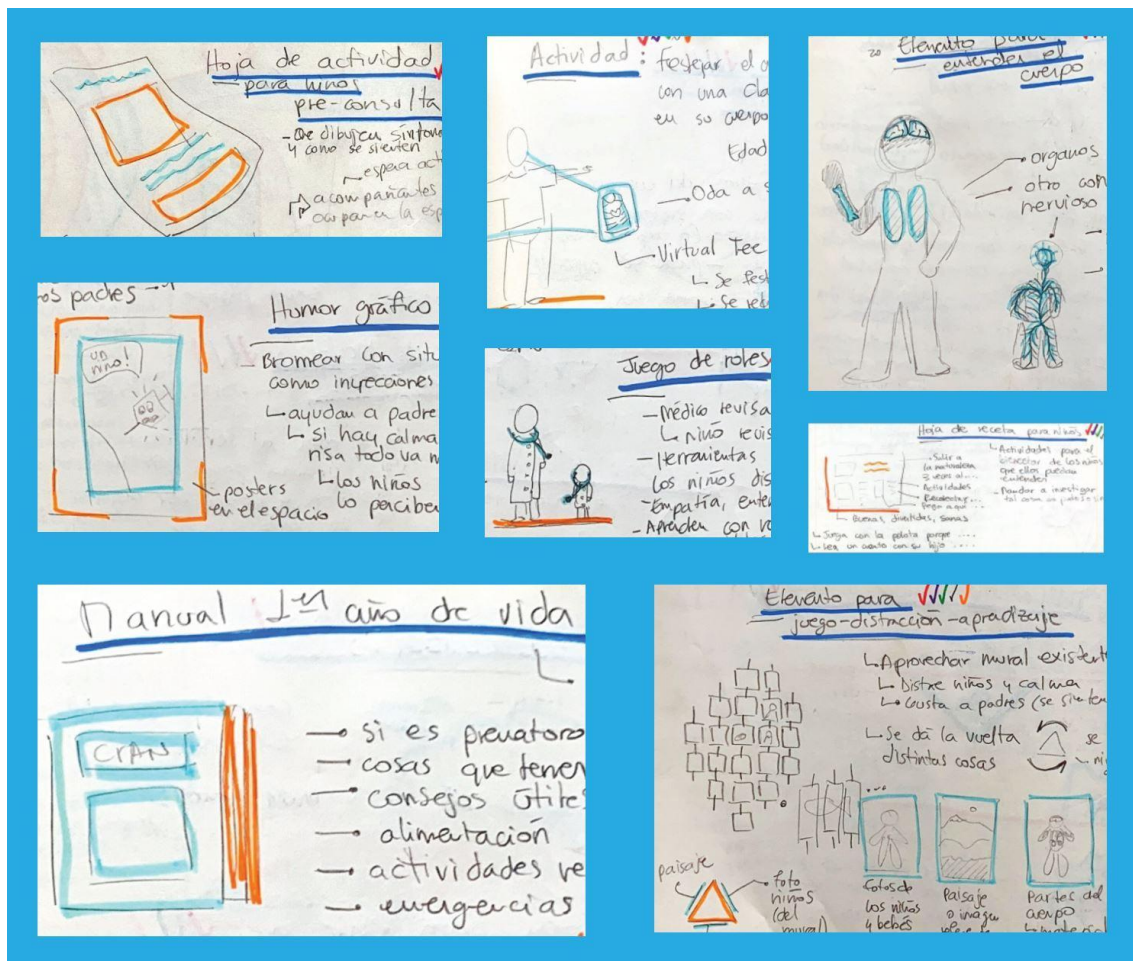 Hoja de actividad
para niños
pre-consulta
- Que dibujen síntoma
y como se sienten
espera act
acompañantes
ocupan en la esp
Actividad: Festejar el c
con una cla
en su cuerpo
Edad
Oda a s
Virtual Tec
Se fest
Se ret
20 Elemento para
entender el
cuerpo
organos
otro con
nervioso
os padres
Humor gráfico
UN NIÑO!
Bromear con situ
como inyecciones
ayudan a padre
si hay calma
risa todo va m
los niños
lo perciben
posters
en el espacio
Juego de roles
- Médico revisa
niño revis
- Herramientas
los niños dis
- Empatía, enten
- Aprenden con
Hoja de receta para niños
- Salir a
la naturaleza
3 veces al...
Actividades
Recuerda...
Pega aquí...
Buenas, divertidas, sanas
Juega con la pelota porque ....
Lea un cuento con su hijo ....
Actividades para el
bienestar de los niños
que ellos puedan
entender
- Mandar a investigar
tal cosa
Manual 1er año de vida
CIAN
si es prematuro
cosas que tener
consejos útiles
alimentación
actividades re
emergencias
Elemento para
juego-distracción-apredizaje
Aprovechar mural existent
Distre niños y calma
Gusta a padres (se sienten
Se dá la vuelta
distintas cosas
se
paisaje
foto
niños
(del
mural)
fotos de
los niños
y bebés
Paisaje
o imágen
Partes del
cuerpo